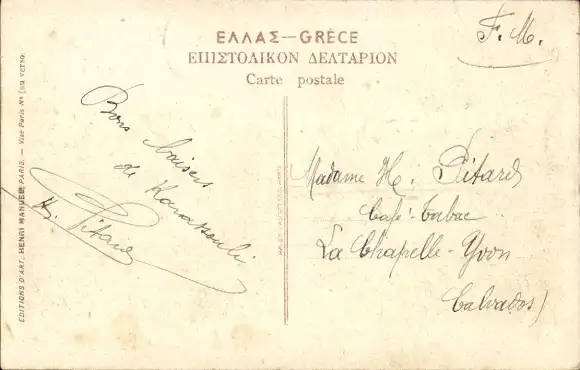 ΕΛΛΑΣ—GRÈCE
ΕΠΙΣΤΟΛΙΚΟΝ ΔΕΛΤΑΡΙΟΝ
Carte postale
F. M.
Bons baisers
de Karassouli
H. Pitard
Madame H. Pitard
Café-Tabac
La Chapelle-Yvon
Calvados)
EDITIONS D'ART. HENRI MANUEL, PARIS. — Visé Paris No (au verso